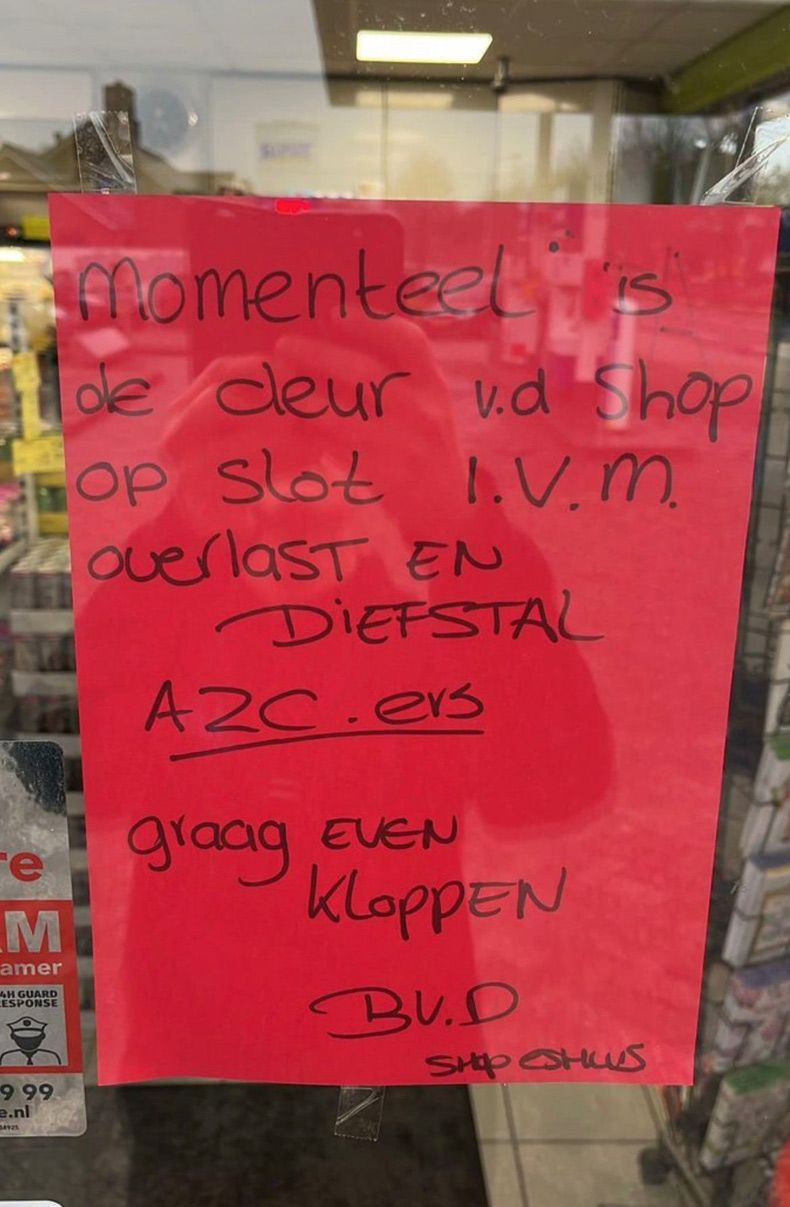 Momenteel is
de deur v.d Shop
op slot I.V.M.
overlast EN
DIEFSTAL
AZC.ers
graag EVEN
KLOPPEN
BV.D
SHOP ESHUIS
re
AM
amer
4H GUARD
ESPONSE
9 99
e.nl